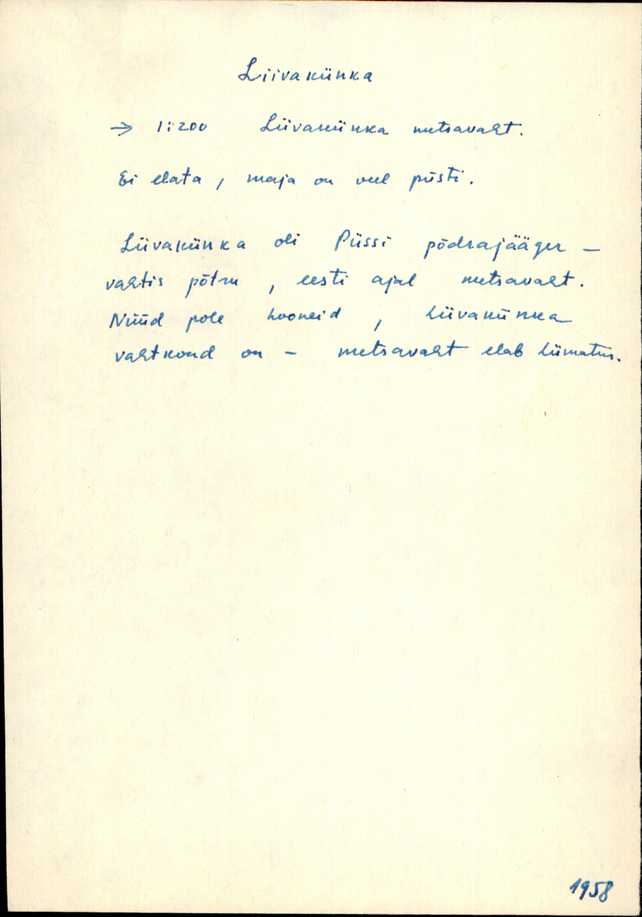 Liivakünka
→ 1:200 Liivakünka metsavaht.
Ei elata, maja on veel püsti.
Liivakünka oli Püssi põdrajääger –
vahtis põtru, eesti ajal metsavaht.
Nüüd pole hooneid, Liivakünka
vahtkond on – metsavaht elab Liimatus.
1958